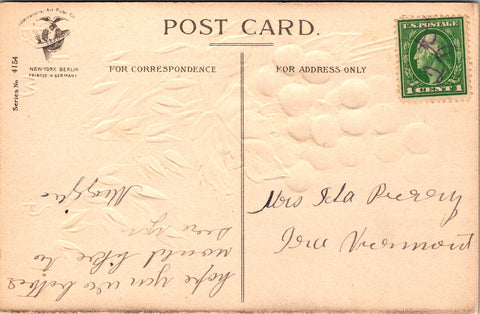 International Art Publ. Co.
NEW YORK BERLIN
PRINTED IN GERMANY
Series No. 4154
POST CARD.
FOR CORRESPONDENCE
FOR ADDRESS ONLY
U.S. POSTAGE
1 CENT 1
hope you are better
would like to
see you
Maggie
Mrs Ida
Vermont